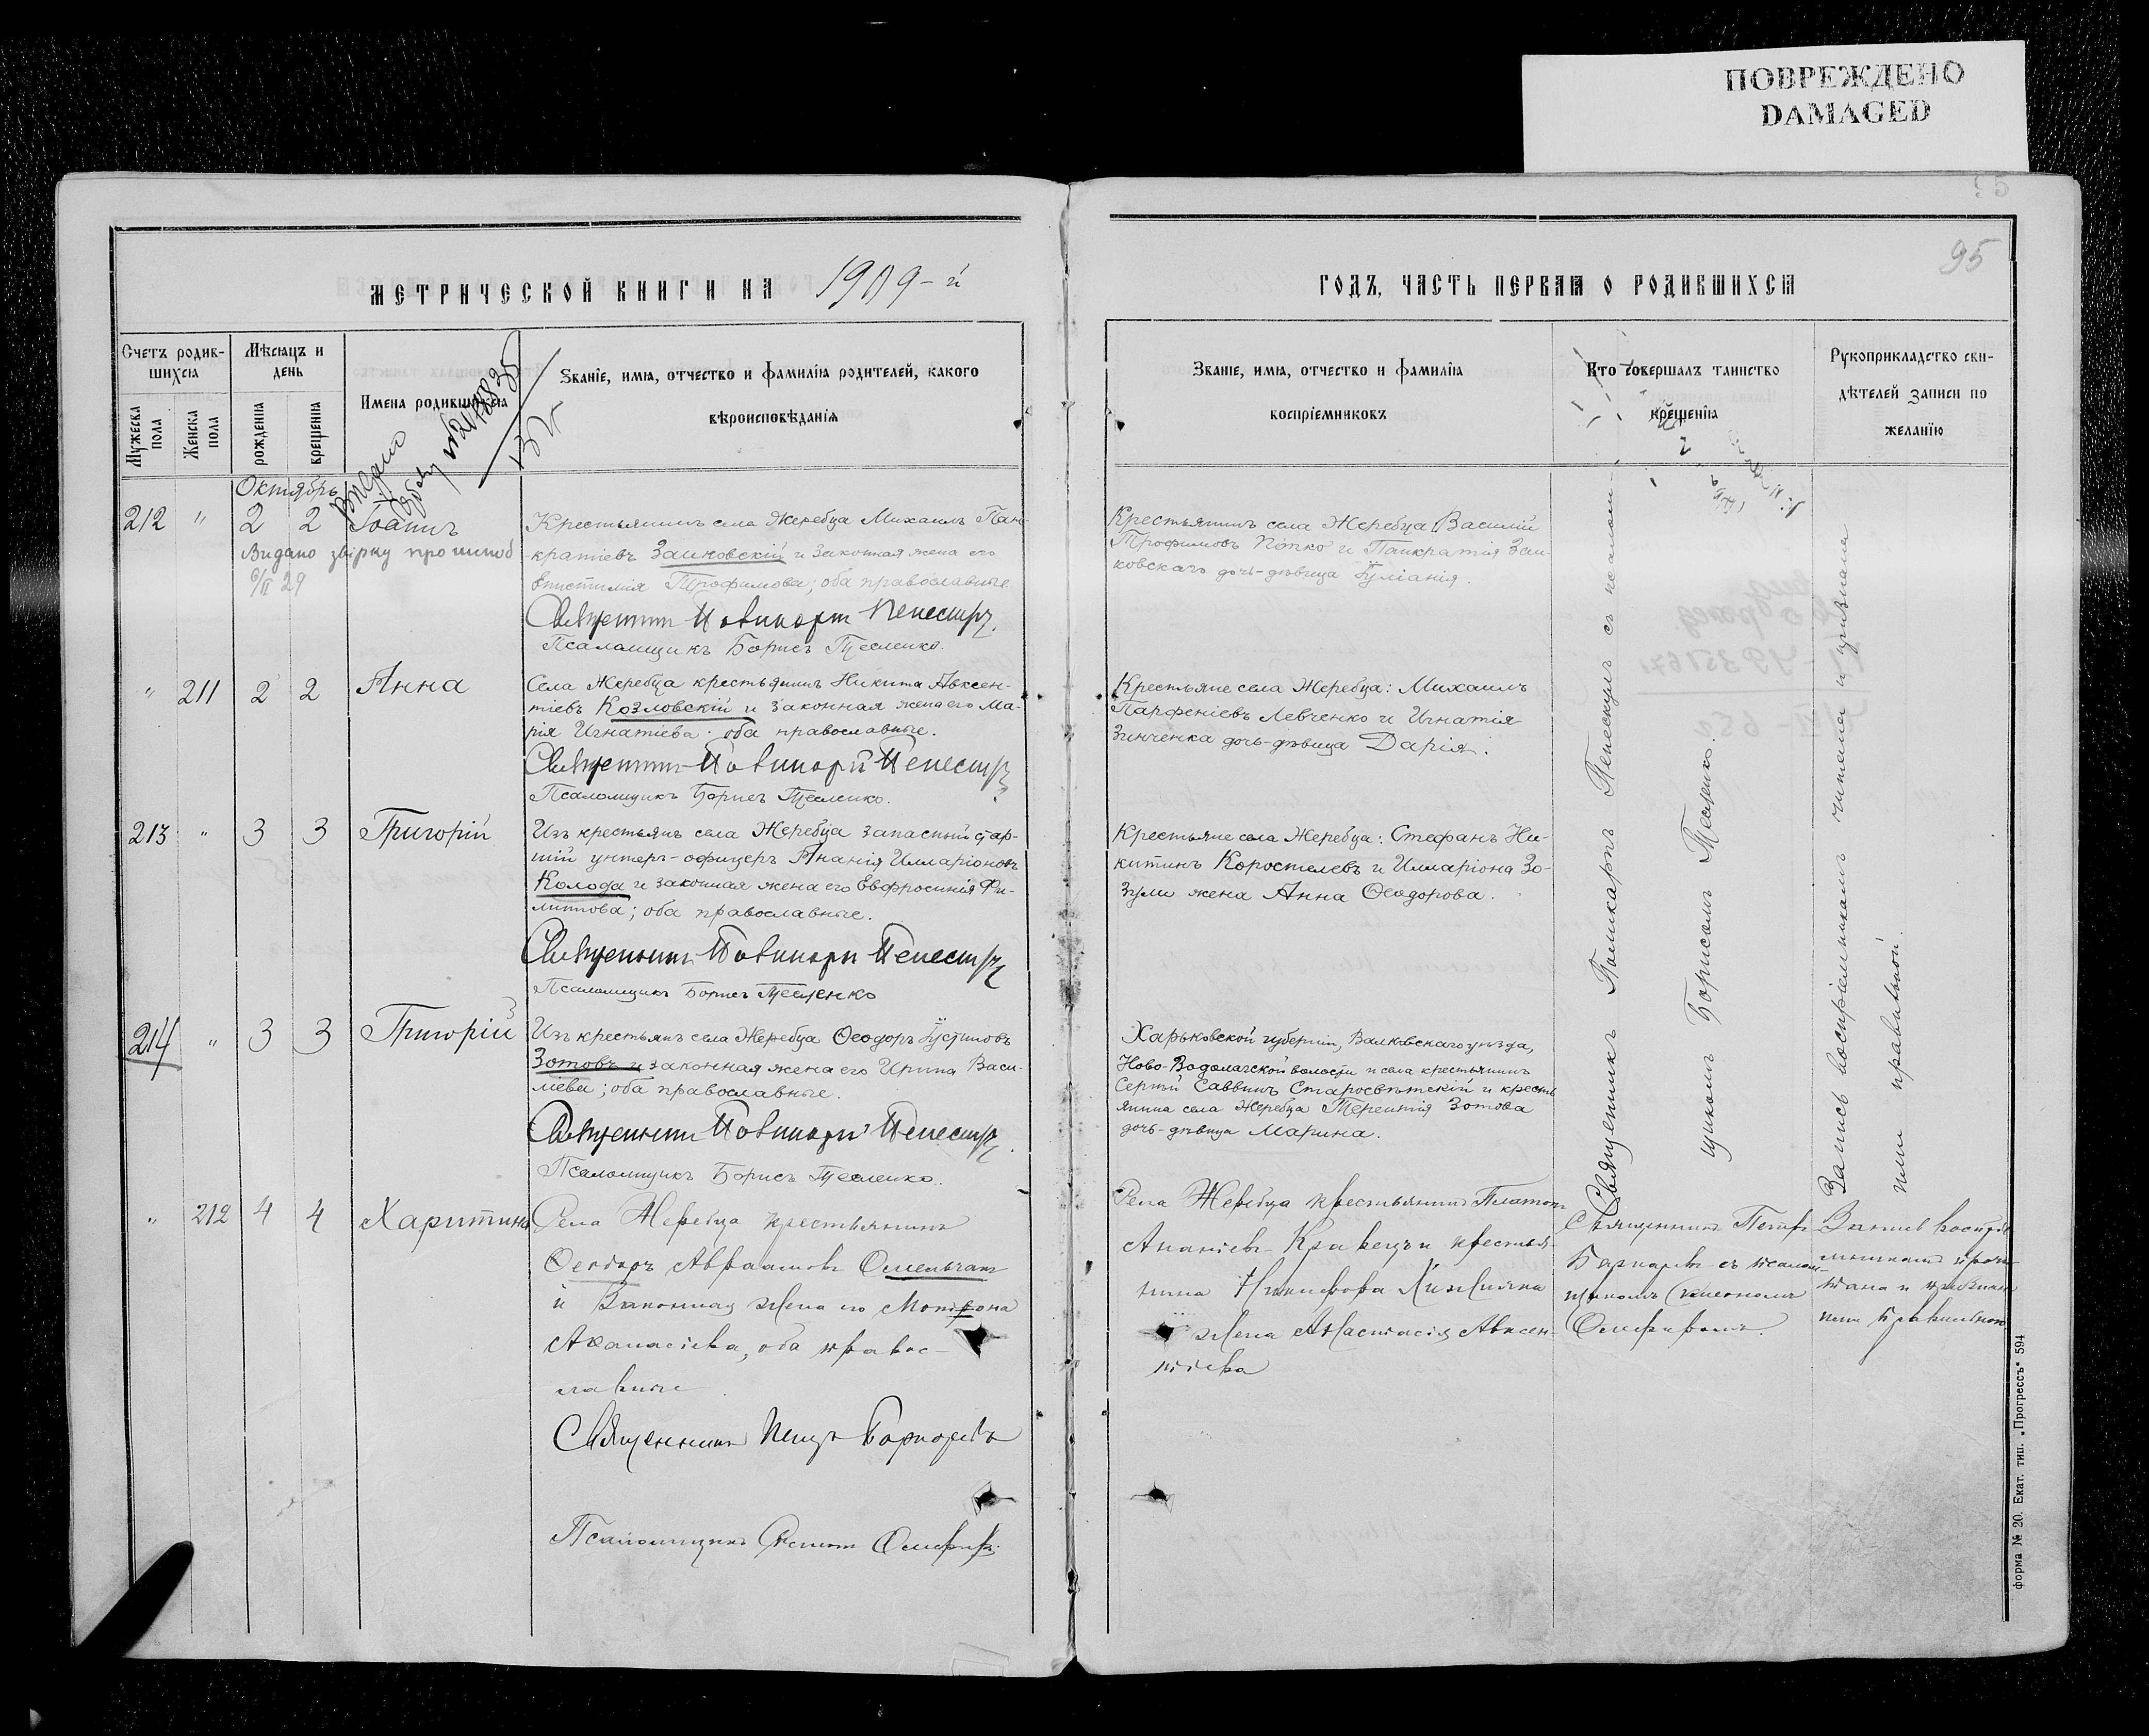 ПОВРЕЖДЕНО
DAMAGED
95
МЕТРИЧЕСКОЙ КНИГИ НА 1909-й
ГОДЪ, ЧАСТЬ ПЕРВАЯ О РОДИВШИХСЯ
Счетъ родив-
шихся
Мужеска пола
Женска пола
Мѣсяцъ и
день
рожденія
крещенія
Имена родившихся
Званіе, имя, отчество и фамилія родителей, какого
вѣроисповѣданія
Званіе, имя, отчество и фамилія
воспріемниковъ
Кто совершалъ таинство
крещенія
Рукоприкладство сви-
дѣтелей записи по
желанію
Октябрь
212 " 2 2 Іоаннъ
Видано
6/II 29
Крестьянинъ села Жеребца Михаилъ Пан-
кратіевъ Заиковскій и законная жена его
Епистимія Трофимова; оба православные.
Священникъ Поликарпъ
Псаломщикъ Борисъ Тесленко.
Крестьянинъ села Жеребца Василій
Трофимовъ и Панкратія Заи-
ковскаго дочь-дѣвица Іуліанія.
" 211 2 2 Анна
Села Жеребца крестьянинъ Никита Авксен-
тіевъ Козловскій и законная жена его Ма-
рія Игнатіева; оба православные.
Священникъ Поликарпъ
Псаломщикъ Борисъ Тесленко.
Крестьяне села Жеребца: Михаилъ
Парфеніевъ Левченко и Игнатія
Зинченка дочь-дѣвица Дарія.
213 " 3 3 Григорій
Изъ крестьянъ села Жеребца запасный стар-
шій унтеръ-офицеръ Ананія Илларіоновъ
Колода и законная жена его Евфросинія Фи-
липпова; оба православные.
Священникъ Поликарпъ
Псаломщикъ Борисъ Тесленко
Крестьяне села Жеребца: Стефанъ Ни-
китинъ Коростелевъ и Илларіона Зо-
зули жена Анна Ѳеодорова.
214 " 3 3 Григорій
Изъ крестьянъ села Жеребца Ѳеодоръ Іустиновъ
Зотовъ и законная жена его Ирина Васи-
ліева; оба православные.
Священникъ Поликарпъ
Псаломщикъ Борисъ Тесленко.
Харьковской губерніи, Валковскаго уѣзда,
Ново-Водолагской волости и села крестьянинъ
Сергѣй Саввинъ Старосвѣтскій и кресть
янина села Жеребца Терентія Зотова
дочь-дѣвица Марина.
Священникъ Поликарпъ съ псалом-
щикомъ Борисомъ Тесленко.
Запись воспріемникамъ читана и признана
ими правильной.
" 212 4 4 Харитина
Села Жеребца крестьянинъ
Ѳеодоръ Авраамовъ Омельчакъ
и законная жена его
Аѳанасіева, оба правос-
лавные
Священникъ Петръ
Псаломщикъ
Села Жеребца крестьянинъ Платонъ
Ананіевъ Кравецъ и крестья-
нина Никифора
жена Анастасія Авксен-
тіева
Священникъ Петръ
съ псалом-
щикомъ
Запись воспріе
мникамъ прочи-
тана и признана
ими правильною
форма № 20. Екат. тип. „Прогрессъ" 594